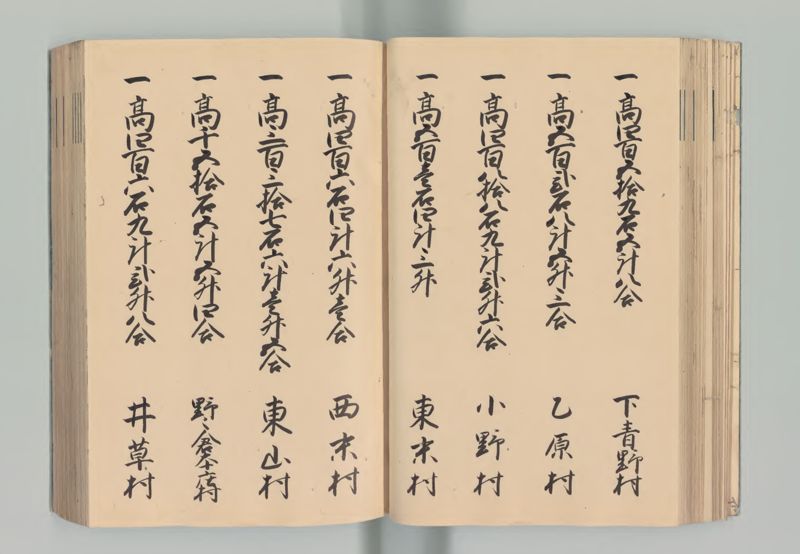 一高四百五拾九石五斗八合 下青野村
一高五百弐石八斗五升三合 乙原村
一高四百八拾八石九斗弐升六合 小野村
一高五百壱石四斗三升 東末村
一高四百六石四斗六升壱合 西末村
一高三百三拾七石六斗壱升五合 東山村
一高千五拾石五斗五升四合 野々倉
一高四百六石九斗弐升八合 井草村